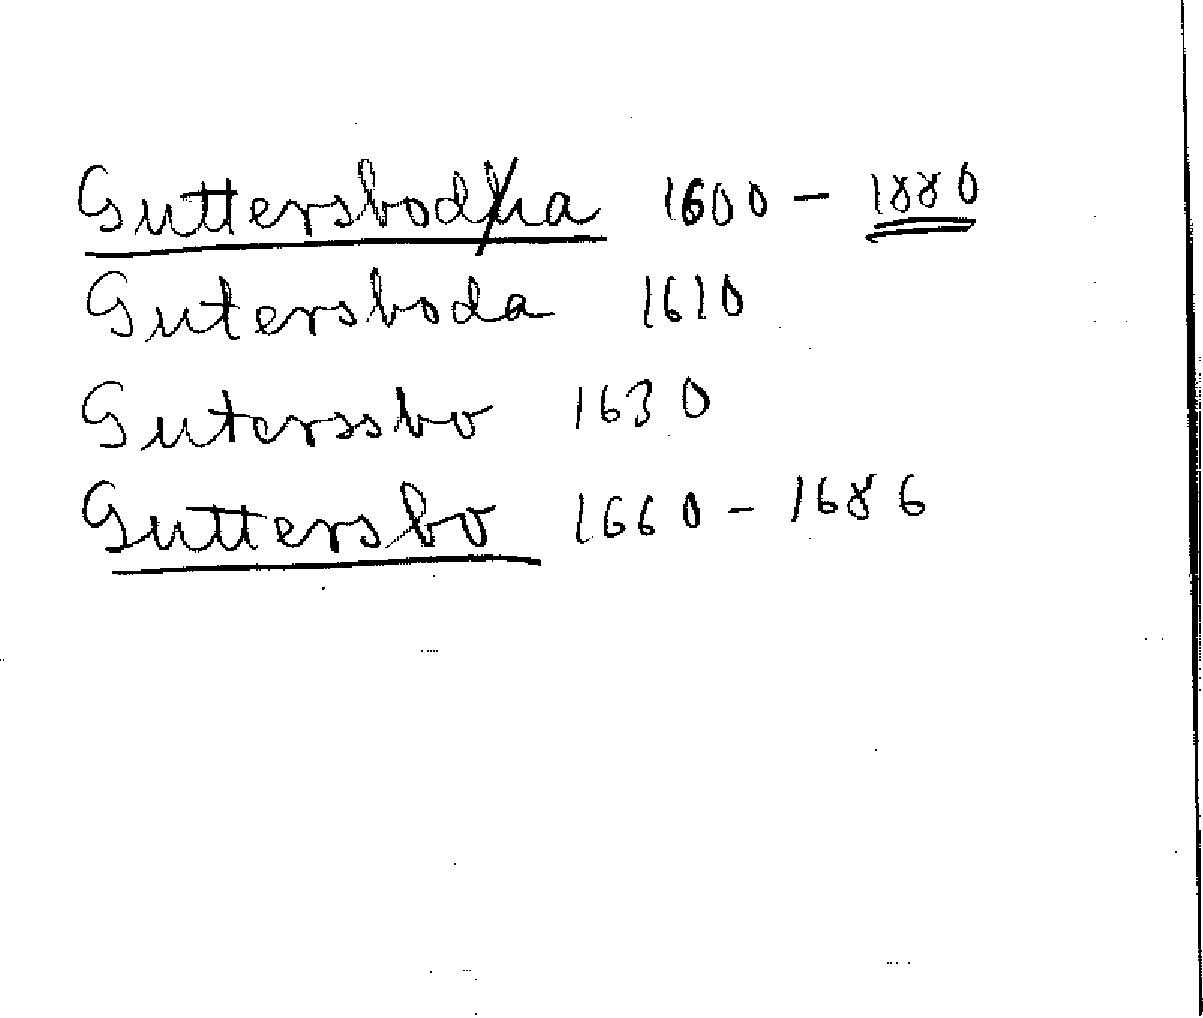 Guttersboda 1600 - 1880
Gutersboda 1610
Guterssbo 1630
Guttersbo 1660 - 1686